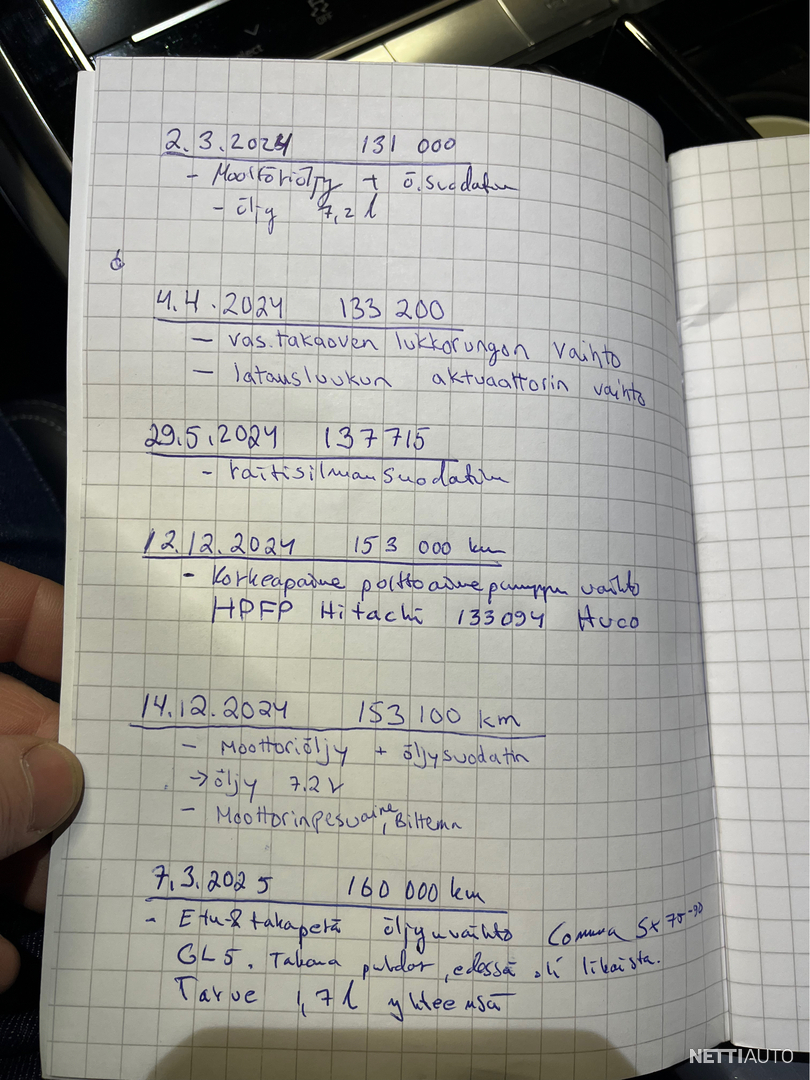 2.3.2024 131 000
- Moottoriöljy + ö.suodatin
- öljy 7,2 l
ö
4.4.2024 133 200
- vas.takaoven lukkorungon vaihto
- latausluukun aktuaattorin vaihto
29.5.2024 137 715
- raitisilmansuodatin
12.12.2024 153 000 km
- Korkeapaine polttoainepumppu vaihto
HPFP Hitachi 133094 Huco
14.12.2024 153 100 km
- Moottoriöljy + öljysuodatin
→ öljy 7.2 l
- Moottorinpesuaine, Biltema
7.3.2025 160 000 km
- Etu- & takaperä öljynvaihto Comma SX 75-90
GL5. Takana puhdas, edessä oli likaista.
Tarve 1,7 l yhteensä
NETTIAUTO